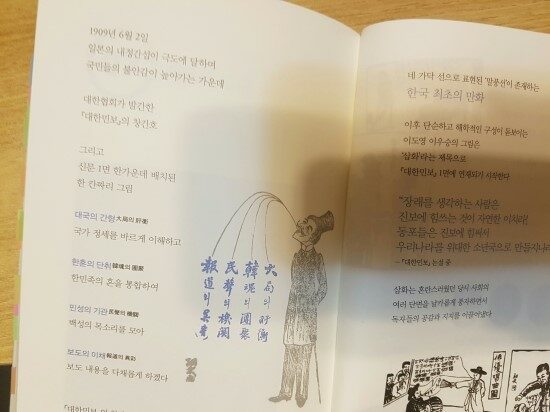 1909년 6월 2일
일본의 내정간섭이 극도에 달하여
국민들의 불안감이 높아가는 가운데
대한협회가 발간한
『대한민보』의 창간호
그리고
신문 1면 한가운데 배치된
한 칸짜리 그림
대국의 간형 大局의 肝衡
국가 정세를 바르게 이해하고
한혼의 단취 韓魂의 團聚
한민족의 혼을 통합하여
민성의 기관 民聲의 機關
백성의 목소리를 모아
보도의 이채 報道의 異彩
보도 내용을 다채롭게 하겠다
『대한민보』
大局의 肝衡
韓魂의 團聚
民聲의 機關
報道의 異彩
네 가닥 선으로 표현된 '말풍선'이 존재하는
한국 최초의 만화
이후 단순하고 해학적인 구성이 돋보이는
이도영 이우승의 그림은
'삽화'라는 제목으로
『대한민보』 1면에 연재되기 시작한다
"장래를 생각하는 사람은
진보에 힘쓰는 것이 자연한 이치라!
동포들은 진보에 힘써서
우리나라를 위대한 소년국으로 만들지니라
-『대한민보』 논설 중
삽화는 혼란스러웠던 당시 사회의
여러 단면을 날카롭게 풍자하면서
독자들의 공감과 지지를 이끌어냈다